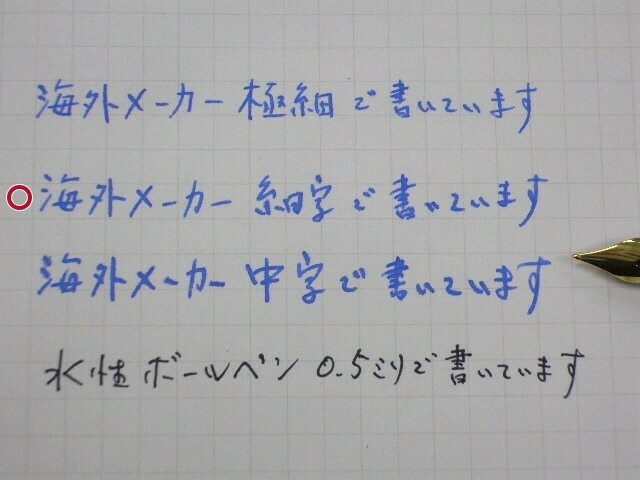 海外メーカー 極細で書いています
海外メーカー 細字で書いています
海外メーカー 中字で書いています
水性ボールペン 0.5ミリで書いています